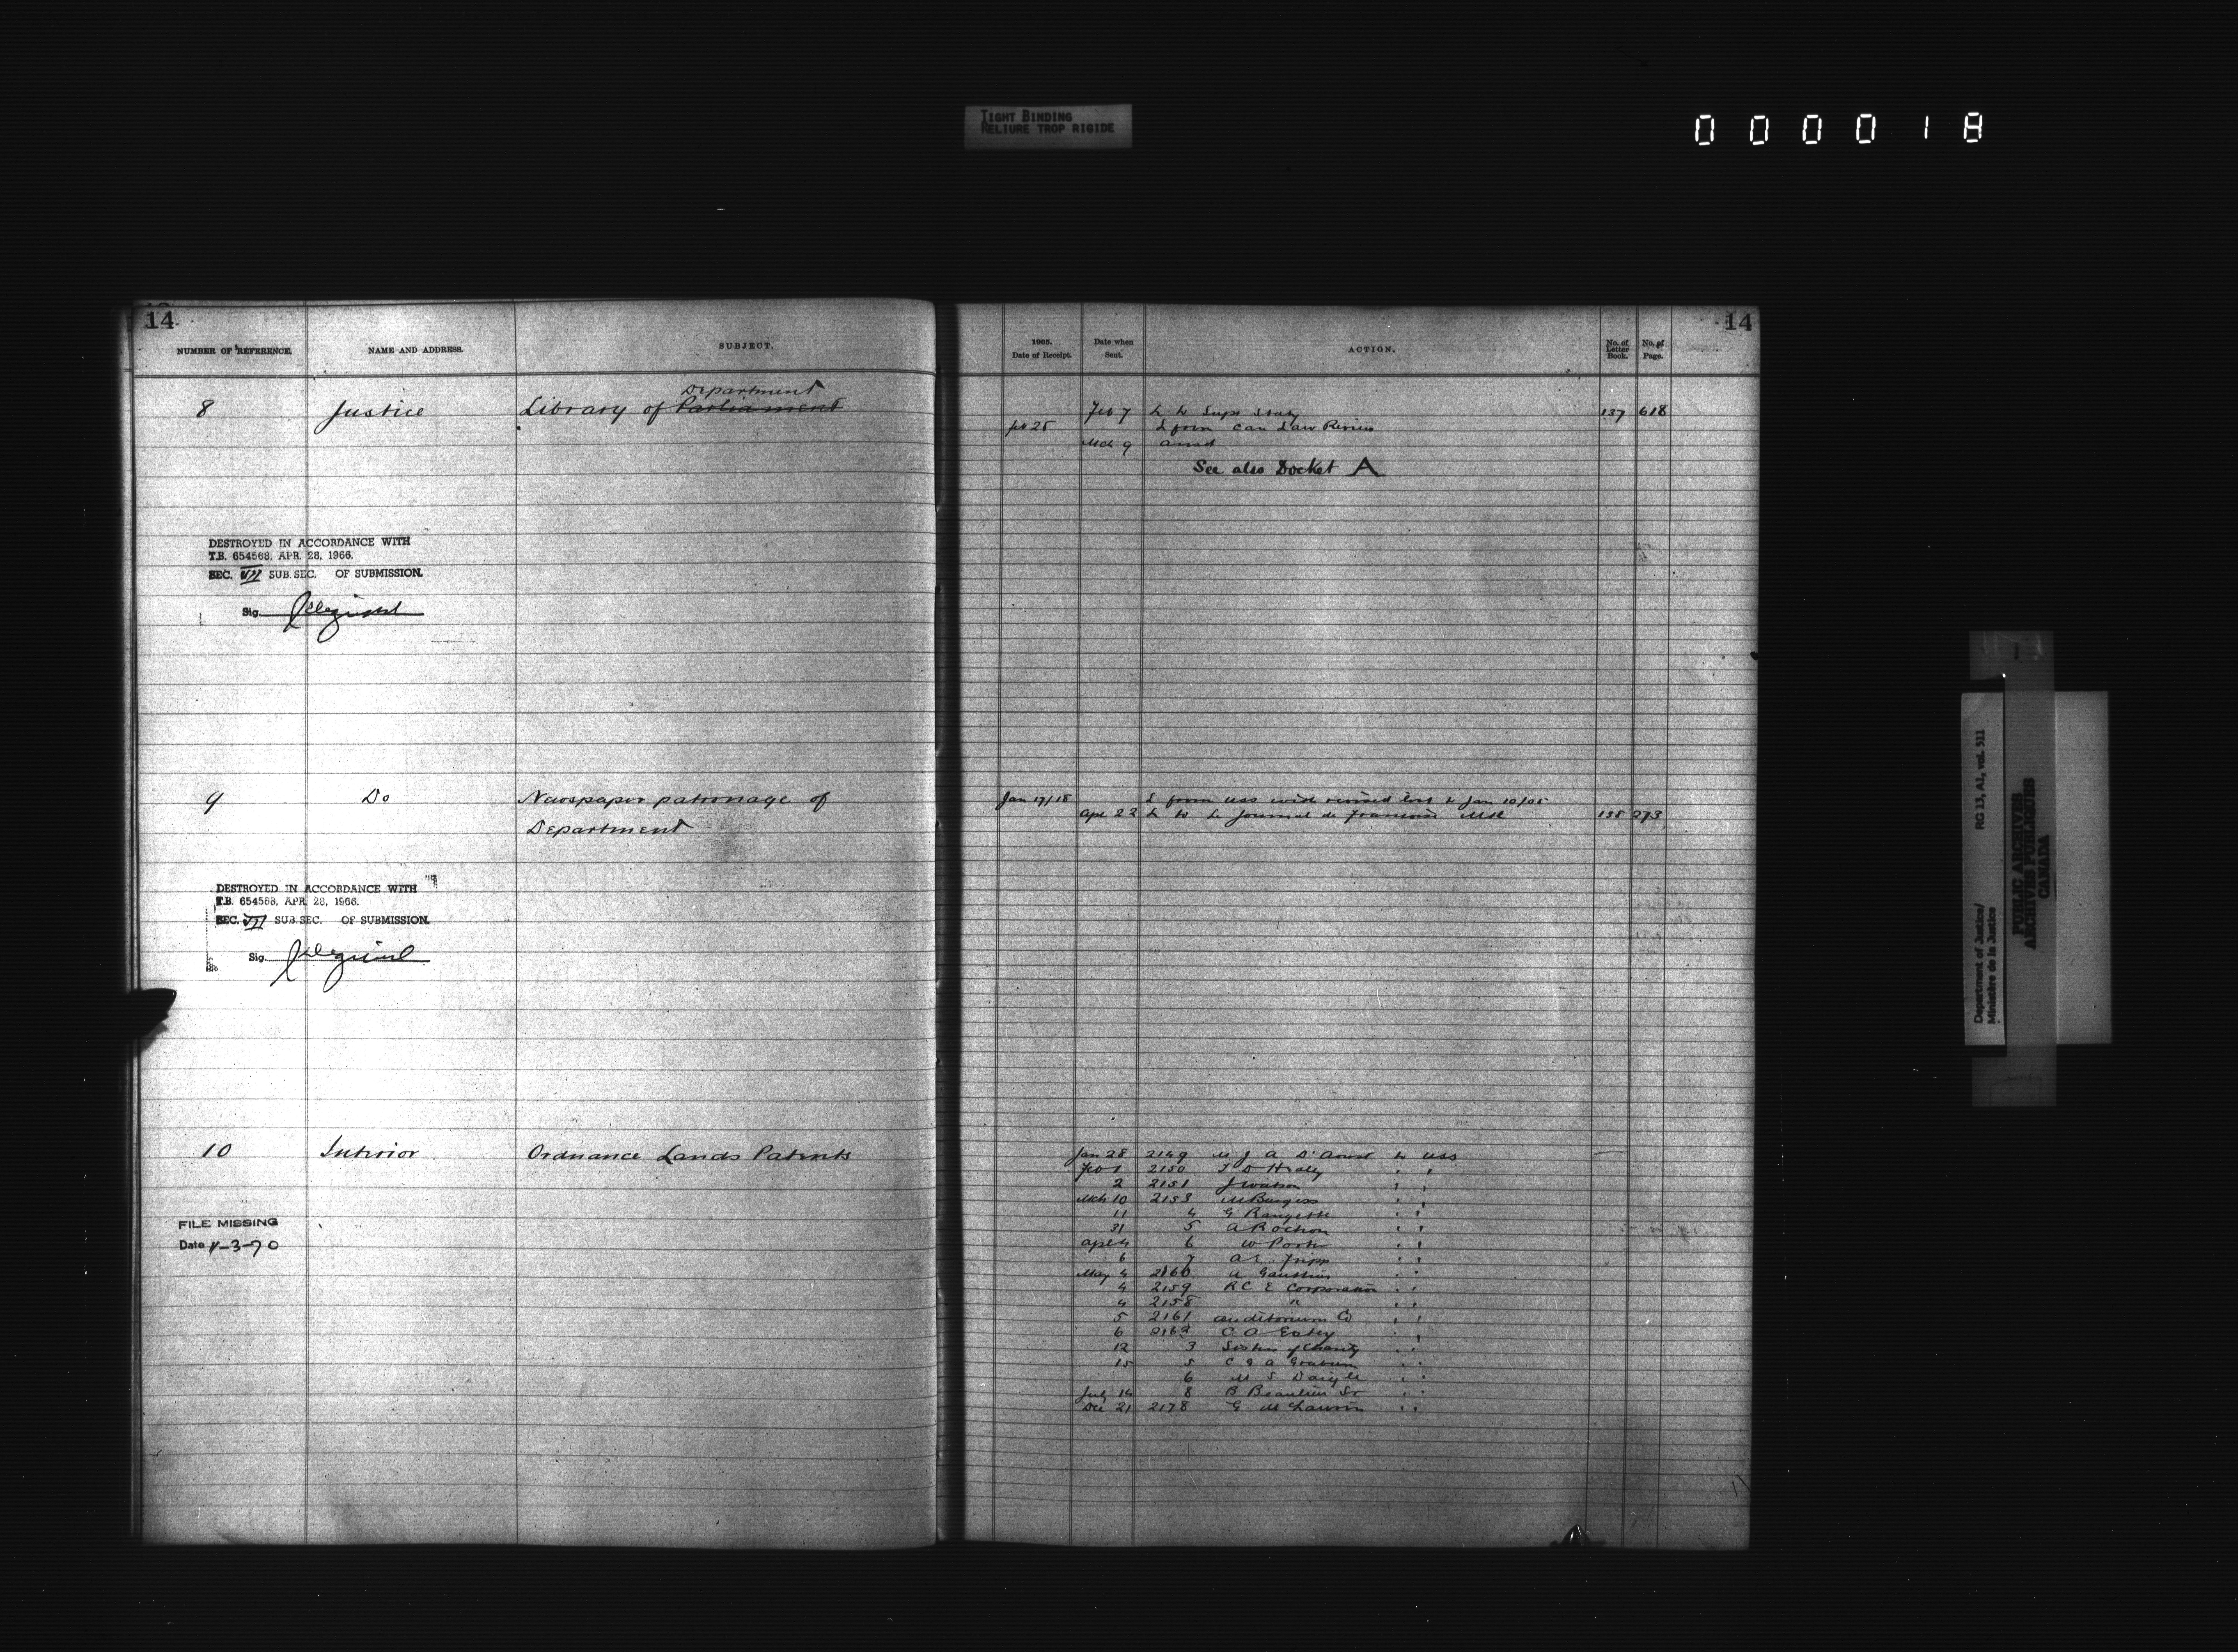 TIGHT BINDING
RELIURE TROP RIGIDE
0 0 0 0 1 8
14
NUMBER OF REFERENCE.
NAME AND ADDRESS.
SUBJECT.
8
Justice
Library of Parliament Department
DESTROYED IN ACCORDANCE WITH
T.B. 654568, APR. 28, 1966.
SEC. VII SUB.SEC. OF SUBMISSION.
Sig.
9
Do
Newspaper patronage of
Department
DESTROYED IN ACCORDANCE WITH
T.B. 654568, APR. 28, 1966.
SEC. VII SUB.SEC. OF SUBMISSION.
Sig.
10
Interior
Ordnance Lands Patents
FILE MISSING
Date 4-3-70
14
1905.
Date of Receipt.
Date when
Sent.
ACTION.
No. of
Letter
Book.
No. of
Page.
Feb 7 L to Supt Staty 137 618
25 L from Can Law Review
Mch 9 ansd
See also Docket A
Jan 17/18 L from USS with revised list to Jan 10/05
Apl 22 L to Le Journal de Francoise Mtl 138 273
Jan 28 2149 M J A to USS
Feb 1 2150 T D Healey " "
2 2151 J Watson " "
Mch 10 2153 M Burgess " "
11 4 G " "
31 5 A Rochon " "
Apl 4 6 W Porter " "
6 7 A E Fripp " "
May 4 2160 A Gauthier " "
4 2159 R C E Corporation " "
4 2158 " " "
5 2161 Auditorium Co " "
6 2162 C A " "
12 3 Sisters of Charity " "
15 5 C G A " "
6 M S Daigle " "
July 14 8 B Beaulieu Sr " "
Dec 21 2178 G " "
Department of Justice/ RG 13, A1, vol. 511
Ministère de la Justice
PUBLIC ARCHIVES
ARCHIVES PUBLIQUES
CANADA